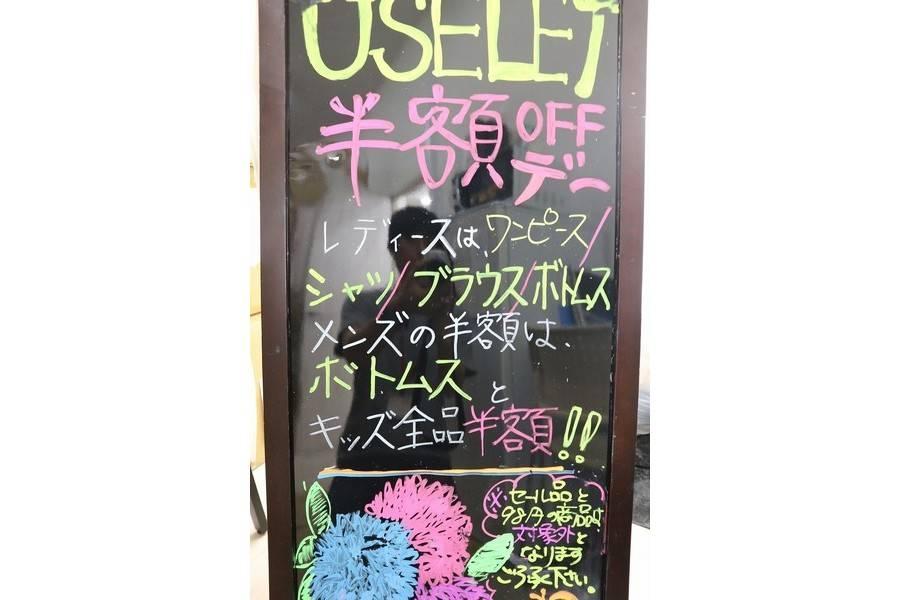 USELET
半額OFF
デー
レディースは、ワンピース/
シャツ/ブラウス/ボトムス
メンズの半額は、
ボトムスと
キッズ全品半額!!
※セール品と
98円の商品は
対象外と
なります
ご了承下さい。